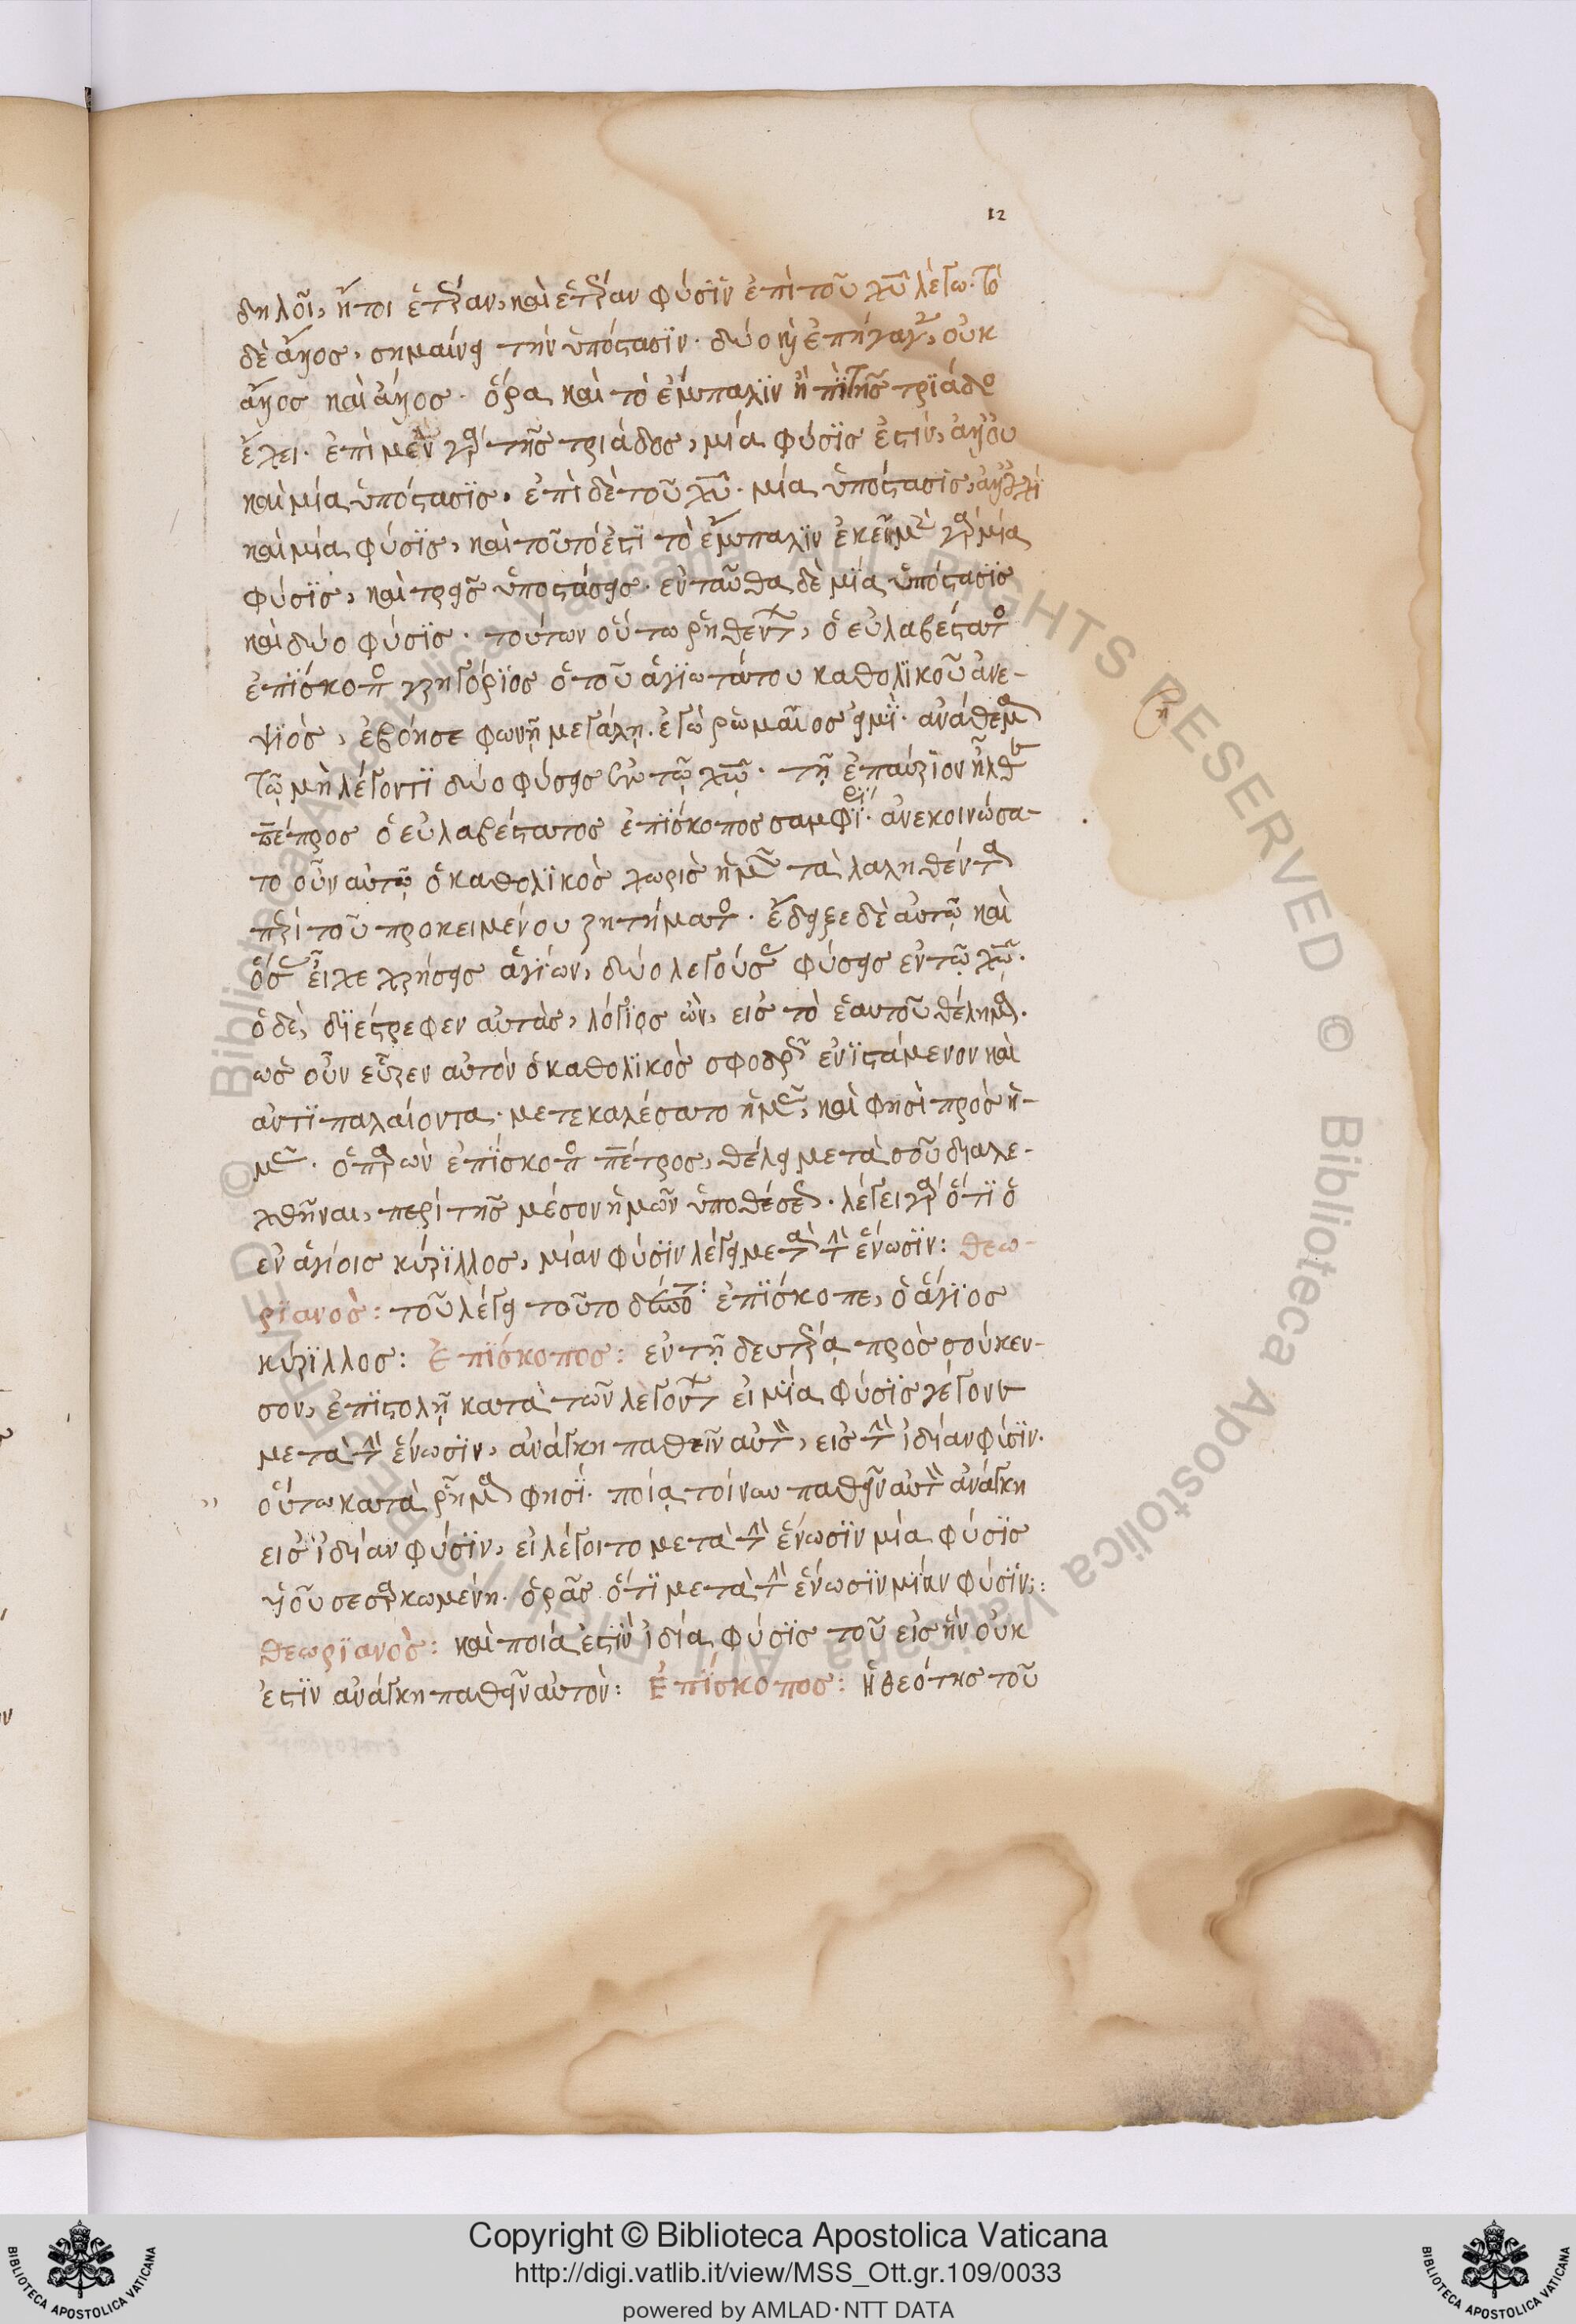 12
δηλοῖ, ἤτοι ἑτέραν, καὶ ἑτέραν φύσϊν ἐπὶ τοῦ χυ λέγω. τὸ
δὲ ἄλλος, σημαίνει τὴν ὑπόστασϊν. δύο
ἄλλος καὶ ἄλλος. ὅρα καὶ τὸ ἔμπαλϊν ἢ ἐπὶ τῆς τρϊάδο
ἔχει. ἐπὶ μὲν γὰρ τῆς τριάδος, μία φύσϊς ἐστὶν, ἀλλ' οὐ
καὶ μία ὑπόστασϊς. ἐπὶ δὲ τοῦ χυ. μία ὑπόστασϊς, ἀλλ' οὐχὶ
καὶ μία φύσϊς, καὶ τοῦτό ἐστϊ τὸ ἔμπαλϊν ἐκεῖ μὲν γὰρ μία
φύσϊς, καὶ τρεῖς ὑποστάσεις. ἐνταῦθα δὲ μία ὑπόστασϊς
καὶ δύο φύσϊς. τούτων οὕτω ῥηθέντων, ὁ εὐλαβέστατος
ἐπΐσκοπος γρηγόριος ὁ τοῦ ἁγϊωτάτου καθολϊκοῦ ἀνε-
ψϊὸς, ἐβόησε φωνῇ μεγάλῃ. ἐγὼ ῥωμαῖος εἰμϊ. ἀνάθεμα
τῷ μὴ λέγοντϊ δύο φύσεις ἐν τῷ χω. τῇ ἐπαύριον ἦλθεν
πέτρος ὁ εὐλαβέστατος ἐπΐσκοπος ἀνεκοινώσα-
το οὖν αὐτῷ ὁ καθολϊκὸς χωρὶς ἡμῶν τὰ λαληθέντα
περὶ τοῦ προκειμένου ζητήματος. ἔδειξε δὲ αὐτῷ καὶ
ὅσας εἶχε χρήσεις ἁγίων, δύο λεγούσας φύσεις ἐν τῷ χω.
ὁ δὲ, δϊέστρεφεν αὐτὰς, λόγϊος ὢν, εἰς τὸ ἑαυτοῦ θέλημα.
ὡς οὖν εὗρεν αὐτὸν ὁ καθολϊκὸς σφοδρῶς ἐνϊστάμενον καὶ
ἀντϊπαλαίοντα. μετεκαλέσατο ἡμᾶς, καὶ φησὶ πρὸς ἡ-
μᾶς. ὁ παρὼν ἐπΐσκοπος πέτρος, θέλει μετὰ σοῦ διαλε-
χθῆναι, περὶ τῆς μέσον ἡμῶν ὑποθέσεως. λέγει γὰρ ὅτϊ ὁ
ἐν ἁγίοις κύρϊλλος, μίαν φύσϊν λέγει μετὰ τὴν ἕνωσϊν: θεω-
ρϊανὸς: τοῦ λέγει τοῦτο ἐπΐσκοπε, ὁ ἅγϊος
κύρϊλλος: Ἐπΐσκοπος: ἐν τῇ δευτέρᾳ πρὸς σούκεν-
σον, ἐπϊστολῇ κατὰ τῶν λεγόντων εἰ μΐα φύσϊς γέγονεν
μετὰ τὴν ἕνωσϊν, ἀνάγκη παθεῖν αὐτὸν, εἰς τὴν ἰδίαν φύσϊν.
οὕτω κατὰ ῥῆμα φησΐ. ποία τοίνυν παθεῖν αὐτὸν ἀνάγκη
εἰς ἰδίαν φύσϊν, εἰ λέγοιτο μετὰ τὴν ἕνωσϊν μία φύσϊς
ὑιοῦ σεσαρκωμένη. ὁρᾶς ὅτϊ μετὰ τὴν ἕνωσϊν μίαν φύσϊν:
θεωρϊανὸς: καὶ ποιά ἐστϊν ἰδία φύσϊς τοῦ εἰς ἣν οὐκ
ἐστϊν ἀνάγκη παθεῖν αὐτὸν: Ἐπΐσκοπος: ἡ θεότης τοῦ
© Biblioteca Apostolica Vaticana ALL RIGHTS RESERVED
Copyright © Biblioteca Apostolica Vaticana
http://digi.vatlib.it/view/MSS_Ott.gr.109/0033
powered by AMLAD·NTT DATA
BIBLIOTECA APOSTOLICA VATICANA
BIBLIOTECA APOSTOLICA VATICANA